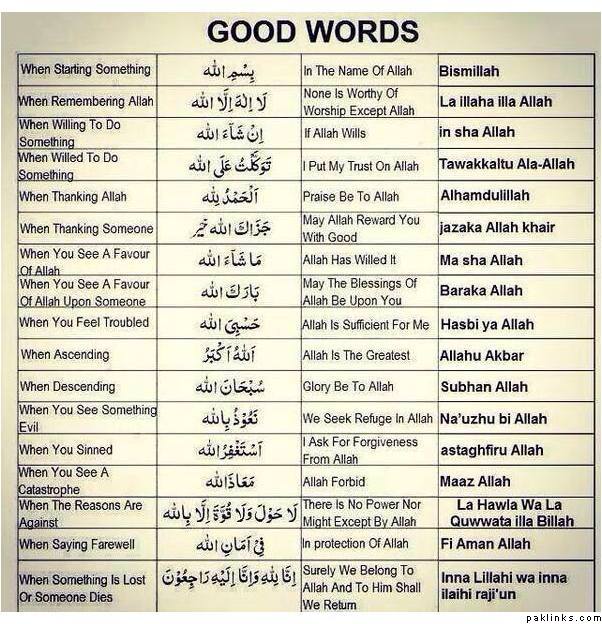 GOOD WORDS
When Starting Something
بِسْمِ الله
In The Name Of Allah
Bismillah
When Remembering Allah
لَا إِلٰهَ إِلَّا الله
None Is Worthy Of
Worship Except Allah
La illaha illa Allah
When Willing To Do
Something
اِنْ شَآءَ الله
If Allah Wills
in sha Allah
When Willed To Do
Something
تَوَكَّلْتُ عَلَى الله
I Put My Trust On Allah
Tawakkaltu Ala-Allah
When Thanking Allah
اَلْحَمْدُ لِله
Praise Be To Allah
Alhamdulillah
When Thanking Someone
جَزَاكَ الله خَيْر
May Allah Reward You
With Good
jazaka Allah khair
When You See A Favour
Of Allah
مَا شَآءَ الله
Allah Has Willed It
Ma sha Allah
When You See A Favour
Of Allah Upon Someone
بَارَكَ الله
May The Blessings Of
Allah Be Upon You
Baraka Allah
When You Feel Troubled
حَسْبِيَ الله
Allah Is Sufficient For Me
Hasbi ya Allah
When Ascending
اَللهُ اَكْبَرُ
Allah Is The Greatest
Allahu Akbar
When Descending
سُبْحَانَ الله
Glory Be To Allah
Subhan Allah
When You See Something
Evil
نَعُوْذُ بِالله
We Seek Refuge In Allah
Na'uzhu bi Allah
When You Sinned
اَسْتَغْفِرُ الله
I Ask For Forgiveness
From Allah
astaghfiru Allah
When You See A
Catastrophe
مَعَاذَ الله
Allah Forbid
Maaz Allah
When The Reasons Are
Against
لَا حَوْلَ وَلَا قُوَّةَ اِلَّا بِالله
There Is No Power Nor
Might Except By Allah
La Hawla Wa La
Quwwata illa Billah
When Saying Farewell
فِيْ اَمَانِ الله
In protection Of Allah
Fi Aman Allah
When Something Is Lost
Or Someone Dies
اِنَّا لِلّٰهِ وَاِنَّا اِلَيْهِ رَاجِعُوْنَ
Surely We Belong To
Allah And To Him Shall
We Return
Inna Lillahi wa inna
ilaihi raji'un
paklinks.com